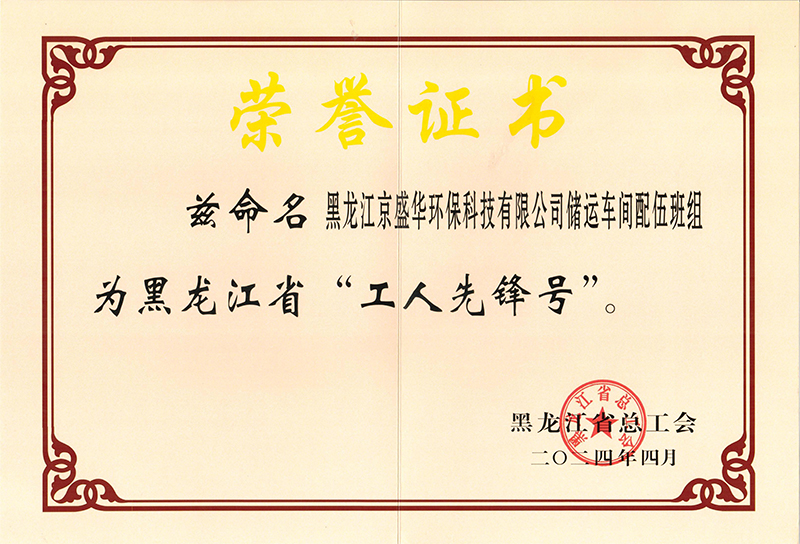 荣誉证书
兹命名 黑龙江京盛华环保科技有限公司储运车间配伍班组
为黑龙江省“工人先锋号”。
黑龙江省总工会
二〇二四年四月
黑龙江省总工会